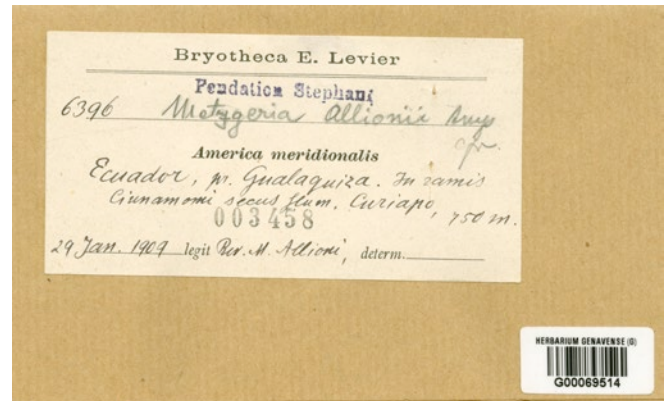 Bryotheca E. Levier
Pendatiom Stephani
6396 Metzgeria Allionii
America meridionalis
Ecuador, pr. Gualaquiza. In ramis
Cinnamomi secus flum. Curiapo, 750 m.
003458
29 Jan. 1909 legit Rev. M. Allioni, determ.
HERBARIUM GENAVENSE (G)
G00069514